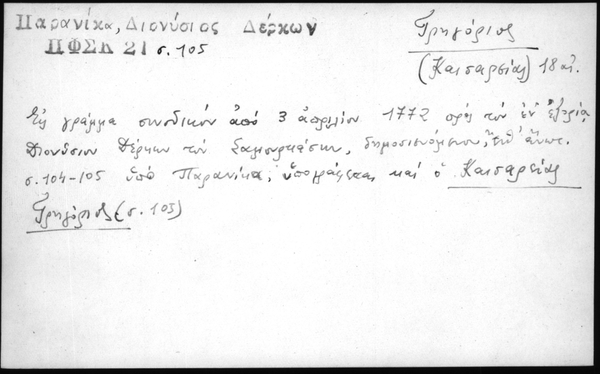 Παρανίκα, Διονύσιος Δέρκων
ΠΦΣΛ 21 σ. 105
Γρηγόριος
(Καισαρείας) 18 αἰ.
Εἰς γράμμα συνοδικόν ἀπό 3 ἀπριλίου 1772 πρός τόν ἐν ἐξορίᾳ
Διονύσιον Δέρκων τόν, δημοσιευόμενον, ἔνθ' ἄνωτ.
σ. 104-105 ὑπό Παρανίκα, ὑπογράφεται καί ὁ Καισαρείας
Γρηγόριος (σ. 105)